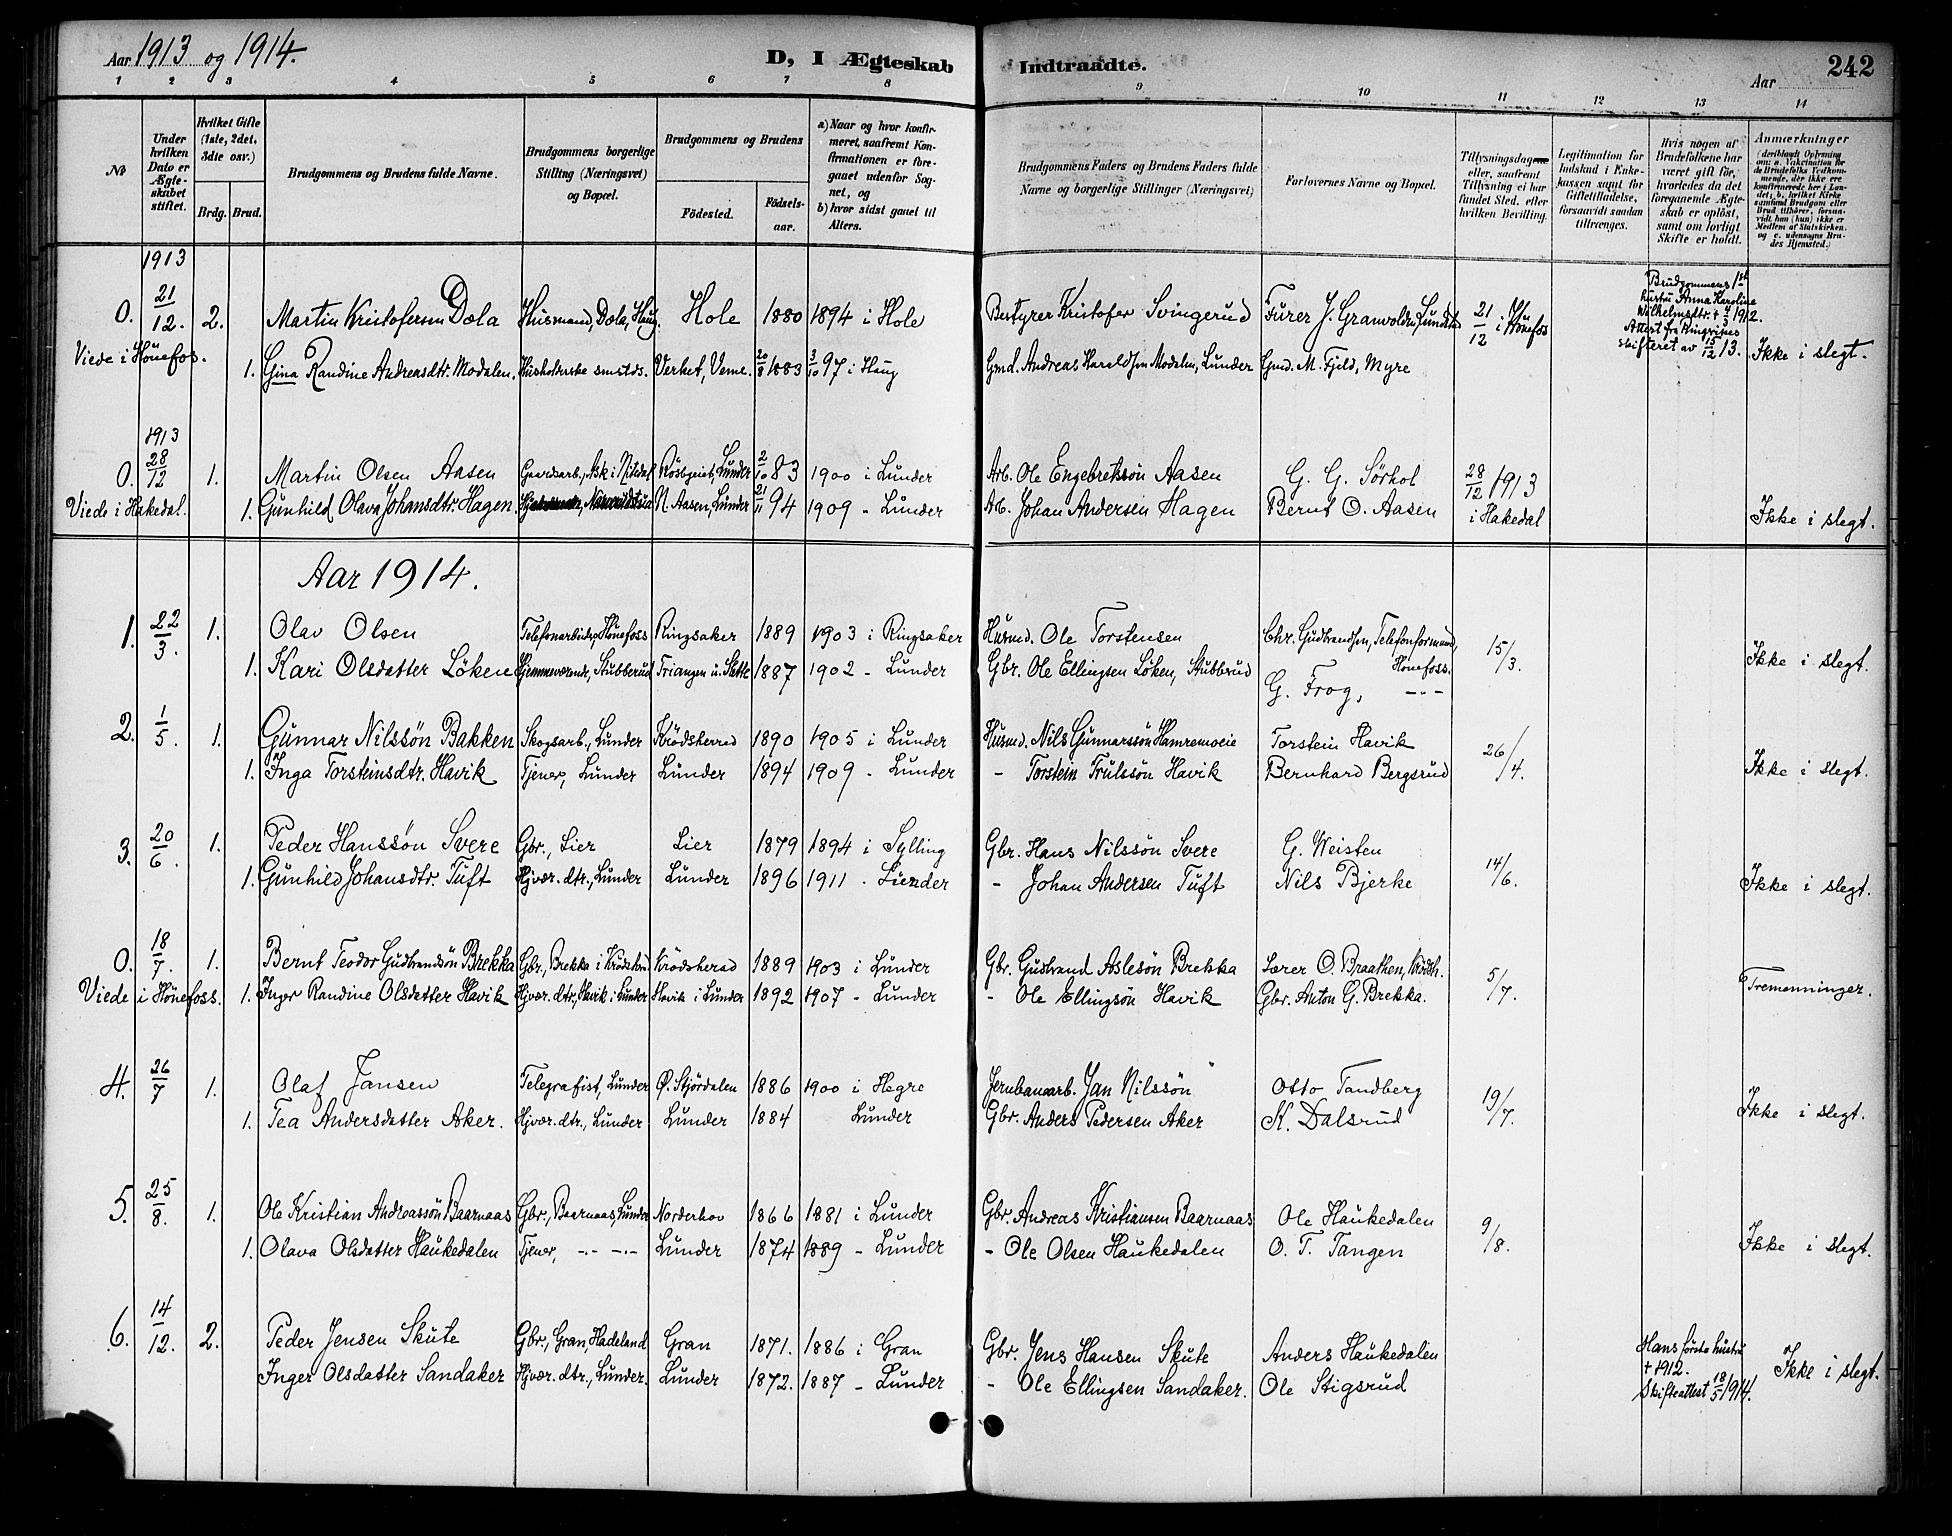 Aar 1913 og 1914.
D, I Ægteskab Indtraadte.
Aar
242
1 2 3 4 5 6 7 8 9 10 11 12 13 14
No
Under hvilken Dato er Ægteskabet stiftet.
Hvilket Gifte (1ste, 2det, 3die osv.)
Brdg. Brud.
Brudgommens og Brudens fulde Navne.
Brudgommens borgerlige Stilling (Næringsvei) og Bopæl.
Brudgommens og Brudens
Födested. Födsels-aar.
a) Naar og hvor konfirmeret, saafremt Konfirmationen er foregaaet udenfor Sognet, og
b) hvor sidst gaaet til Alters.
Brudgommens Faders og Brudens Faders fulde Navne og borgerlige Stillinger (Næringsvei)
Forlovernes Navne og Bopæl.
Tillysningsdagene eller, saafremt Tillysning ei har fundet Sted, efter hvilken Bevilling.
Legitimation for Indskud i Enkekassen samt for Giftetilladelse, forsaavidt saadan tiltrænges.
Hvis nogen af Brudefolkene har været gift för, hvorledes da det foregaaende Ægteskab er oplöst, samt om lovligt Skifte er holdt.
Anmærkninger
(deriblandt Oplysning om: a. Vakcination for de Brudefolks Vedkommende, der ikke ere konfirmerede her i Landet; b. hvilket Kirkesamfund Brudgom eller Brud tilhörer, forsaavidt han (hun) ikke er Medlem af Statskirken, og c. udensogns Brudes Hjemsted.)
1913
0. 21/12. 2. Martin Kristofersen Dæla Husmand, Dæla, Haug. Hole 1880 1894 i Hole Bestyrer Kristofer Svingerud Furer J. Granvolden, Lundst 21/12 i Hönefos
Brudgommens 1ste hustru Anna Karoline Wilhelmsdtr. + 4/3 1912. Attest fra Ringrikes skifteret av 15/12 13.
Viede i Hönefos. 1. Gina Randine Andreasdtr. Modalen. Husholderske smstds. Verket, Veme. 20/8 1883 3/10 97 i Haug Gmd. Andreas Haraldsen Modalen, Lunder Gmd. M. Fjeld, Myre Ikke i slegt.
1913
0. 28/12 1. Martin Olsen Aasen Gaardsarb., Ask i Nitedal Rösbgeieb, Lunder 2/10 83 1900 i Lunder Arb. Ole Engebretsön Aasen G. G. Sörhol 28/12 1913
Viede i Hakedal. 1. Gunhild Olava Johansdtr. Hagen. N. Aasen, Lunder 21/11 94 1909 - Lunder Arb. Johan Andersen Hagen Bernt O. Aasen i Hakedal Ikke i slegt.
Aar 1914.
1. 22/3. 1. Olav Olsen Telefonarbeider, Hönefoss Ringsaker 1889 1903 i Ringsaker Husmd. Ole Torstensen Chr. Gudbrandsen, Telefonformand, Hönefoss. 15/3.
1. Kari Olsdatter Löken Hjemmeværende, Stubberud Triangen u. Sætle 1887 1902 - Lunder Gbr. Ole Ellingsen Löken, Stubbrud G. Frog, -..- Ikke i slegt.
2. 1/5. 1. Gunnar Nilssön Bakken Skogsarb., Lunder Krödsherred 1890 1905 i Lunder Husmd. Nils Gunnarssön Hamremoeie Torstein Havik 26/4.
1. Inga Torsteinsdtr. Havik Tjener, Lunder Lunder 1894 1909 - Lunder - Torstein Trulssön Havik Bernhard Bergsrud Ikke i slegt.
3. 20/6. 1. Peder Hanssön Svere Gbr., Lier Lier 1879 1894 i Sylling Gbr. Hans Nilssön Svere G. Weisten 14/6.
1. Gunhild Johansdtr. Tuft Hjvær. dtr., Lunder Lunder 1896 1911 - Lunder - Johan Andersen Tuft Nils Bjerke Ikke i slegt.
0. 18/7. 1. Bernt Teodor Gudbrandsön Brekka Gbr., Brekka i Krödshrd Krödsherad 1889 1903 i Lunder Gbr. Gudbrand Aslesön Brekka Lærer O. Braathen, Krödsh. 5/7.
Viede i Hönefoss. 1. Inger Randine Olsdatter Havik Hjvær. dtr, Havik i Lunder Havik i Lunder 1892 1907 - Lunder - Ole Ellingsön Havik Gbr. Anton G. Brekka. Tremenninger.
4. 26/7 1. Olaf Jansen Telegrafist, Lunder Ö. Stjördalen 1886 1900 i Hegre Jernbanearb. Jan Nilssön Otto Tandberg 19/7.
1. Tea Andersdatter Aker. Hjvær. dtr., Lunder Lunder 1884 Lunder Gbr. Anders Pedersen Aker K. Dalsrud Ikke i slegt.
5. 25/8. 1. Ole Kristian Andreassön Baarnaas Gbr., Baarnaas, Lunder Norderhov 1866 1881 i Lunder Gbr. Andreas Kristiansen Baarnaas Ole Haukedalen 9/8.
1. Olava Olsdatter Haukedalen Tjener, -..- -..- Lunder 1874 1889 - Lunder - Ole Olsen Haukedalen O. T. Tangen Ikke i slegt.
6. 14/12. 2. Peder Jensen Skute Gbr., Gran, Hadeland Gran 1871. 1886 i Gran Gbr. Jens Hansen Skute Anders Haukedalen Hans første hustru + 1912. Skifteattest 18/5 1914.
Inger Olsdatter Sandaker Hjvær. dtr., Lunder. Lunder 1872. 1887 - Lunder - Ole Ellingsen Sandaker. Ole Stigsrud Ikke i slegt.